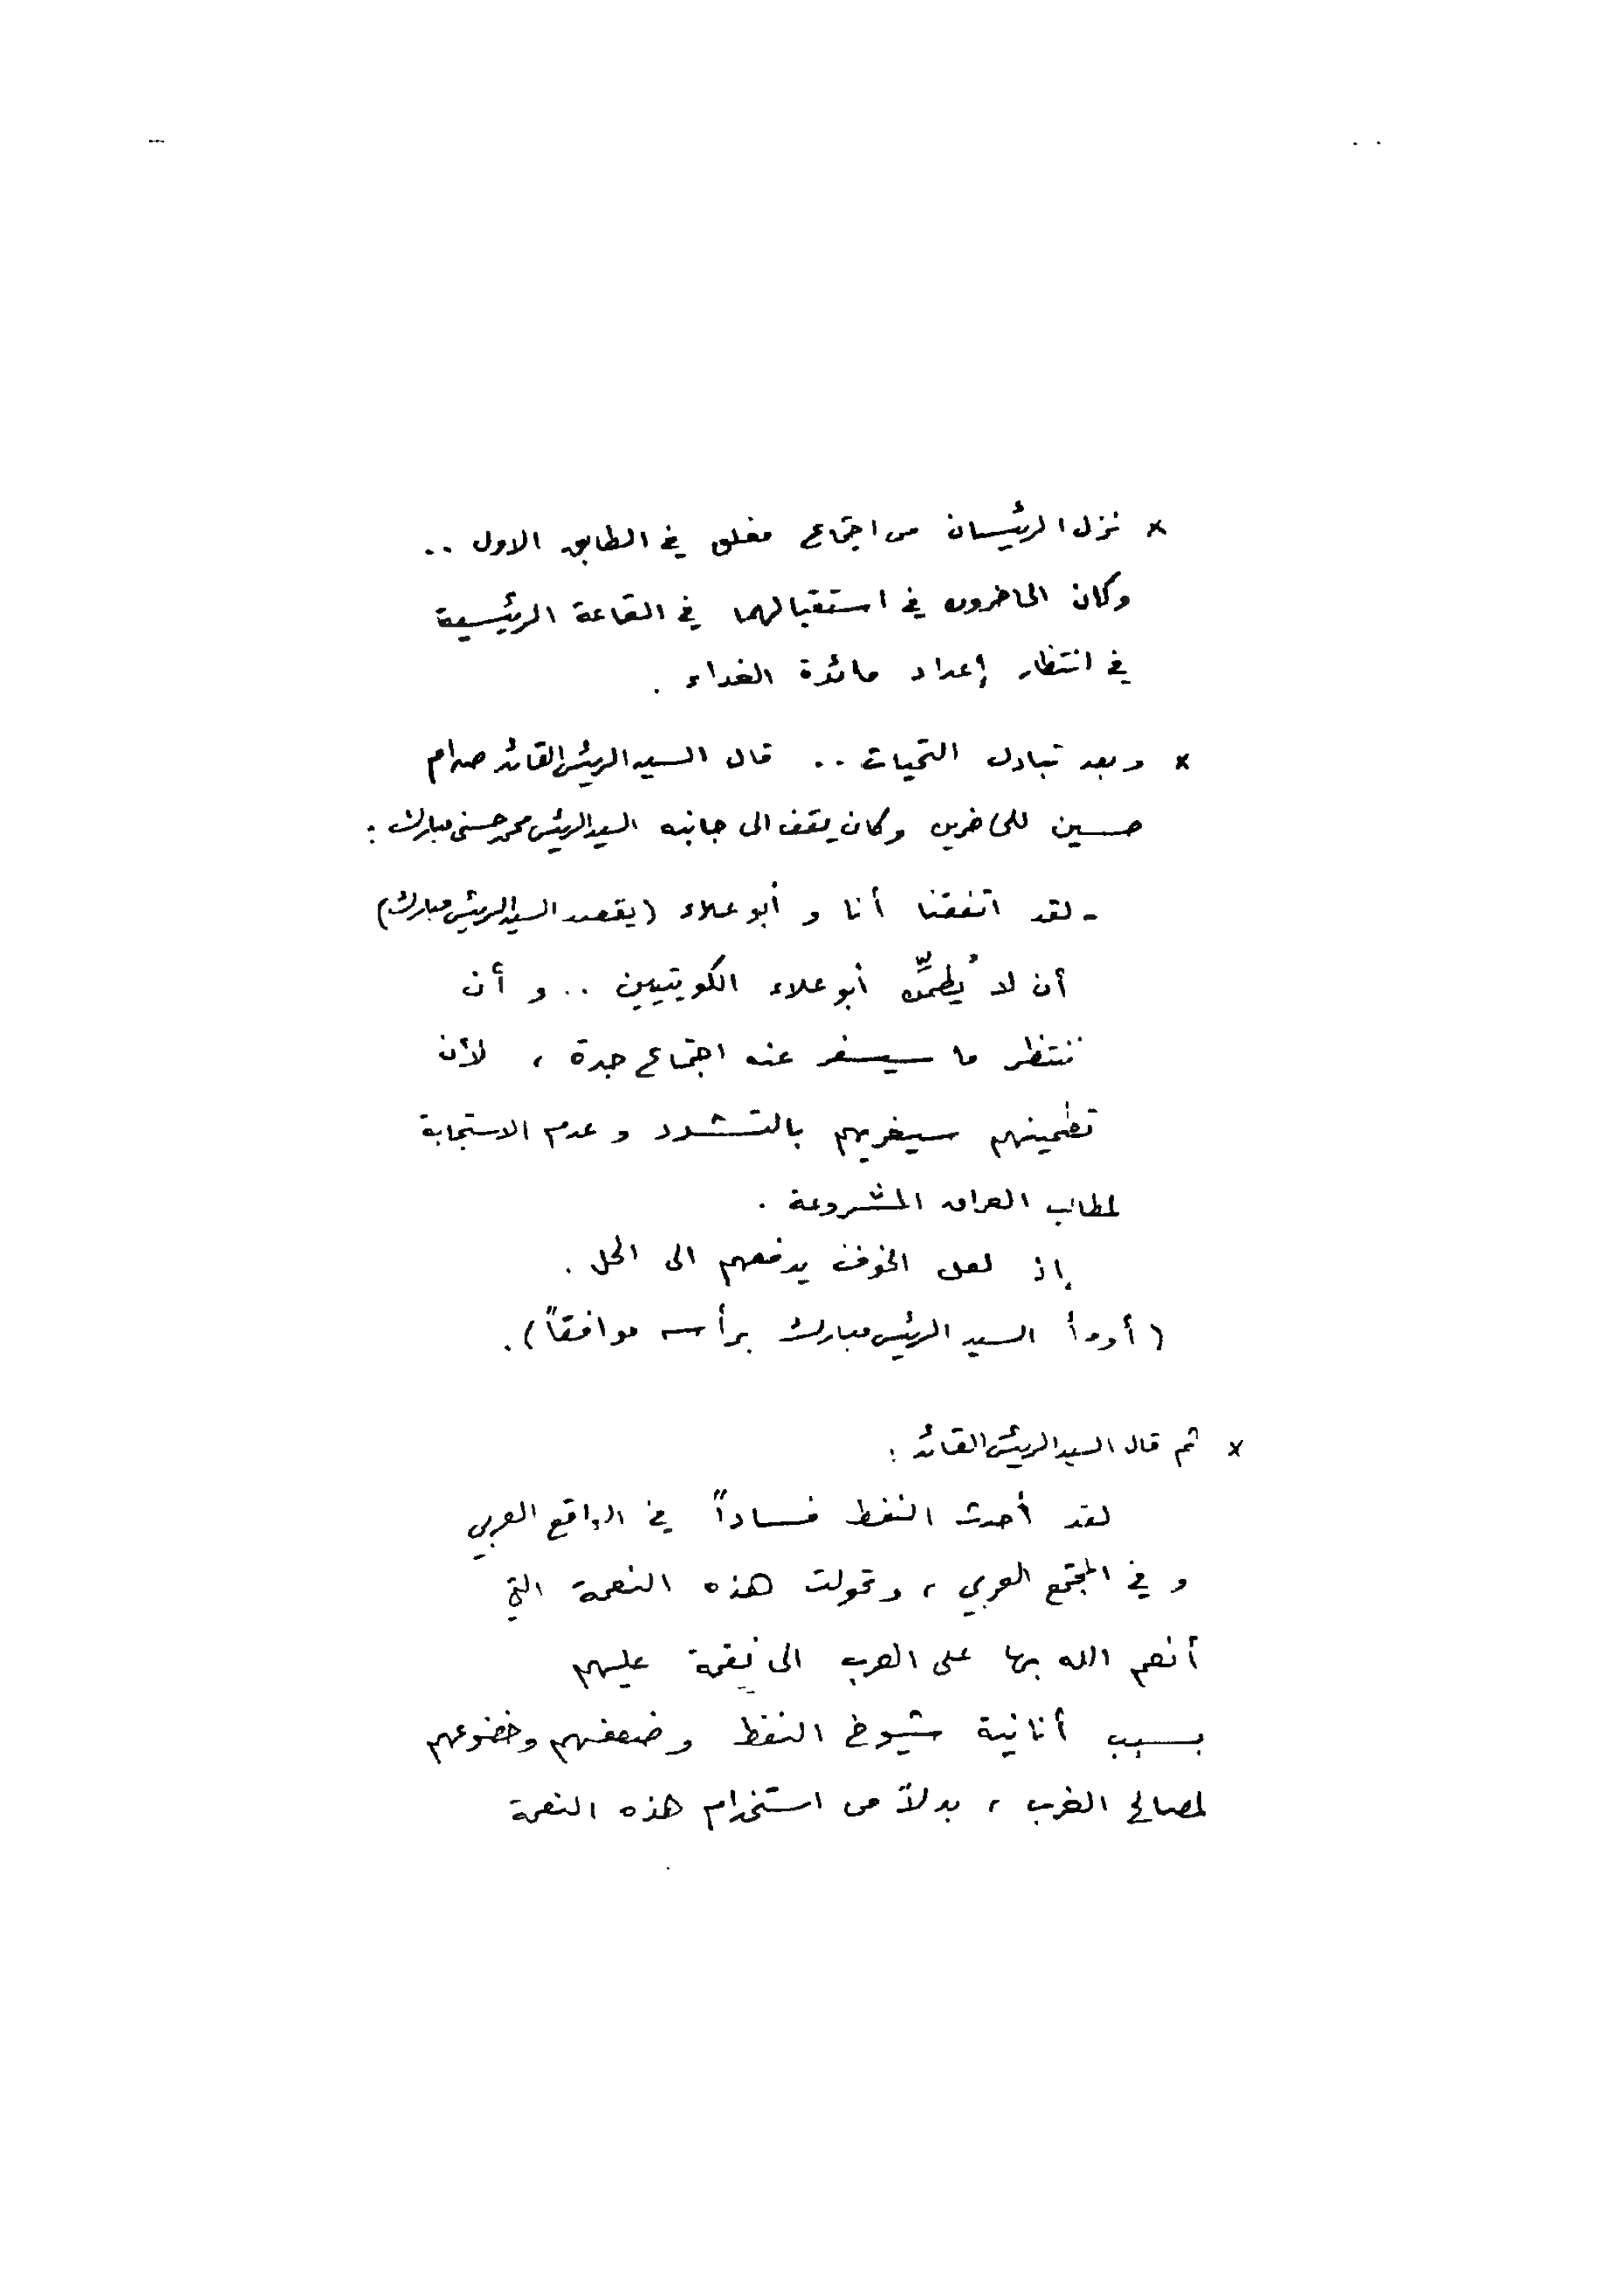 × نزل الرئيسان من اجتماع مغلق في الطابق الاول ..
وكان الحاضرون في استقبالهما في القاعة الرئيسية
في انتظار إعداد مائدة الغداء .
× وبعد تبادل التحيات .. قال السيد الرئيس القائد صدام
حسين للحاضرين وكان يقف الى جانبه السيد الرئيس محمد حسني مبارك :
- لقد اتفقنا أنا و أبو علاء (يقصد السيد الرئيس مبارك)
أن لا يُطمِّن أبو علاء الكويتيين .. و أن
ننتظر ما سيسفر عنه اجتماع جدة ، لأن
تطمينهم سيغريهم بالتشدد و عدم الاستجابة
لمطالب العراق المشروعة .
إذ لعل الخوف يدفعهم الى الحل .
( أومأ السيد الرئيس مبارك برأسه موافقاً ) .
× ثم قال السيد الرئيس القائد :
لقد أحدث النفط فساداً في الواقع العربي
و في المجتمع العربي ، وتحولت هذه النعمة التي
أنعم الله بها على العرب الى نِقمة عليهم
بسبب أنانية شيوخ النفط وضعفهم وخضوعهم
لمصالح الغرب ، بدلاً من استخدام هذه النعمة